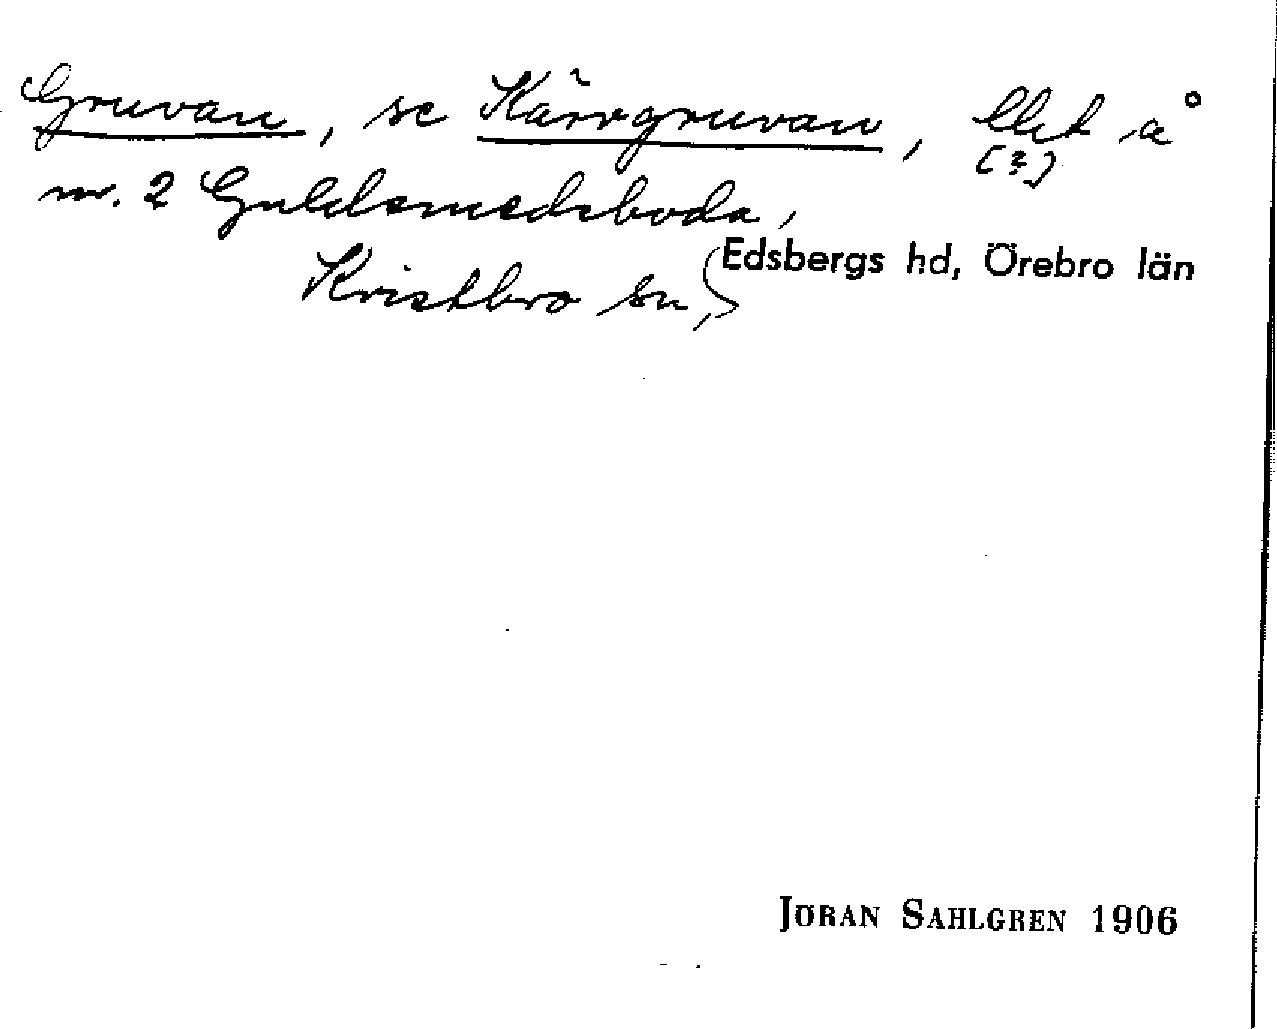 Gruvan, se Kärrgruvan, lht å
(?)
nr. 2 Guldsmedsboda,
Kvistbro sn, Edsbergs hd, Örebro län
JÖRAN SAHLGREN 1906